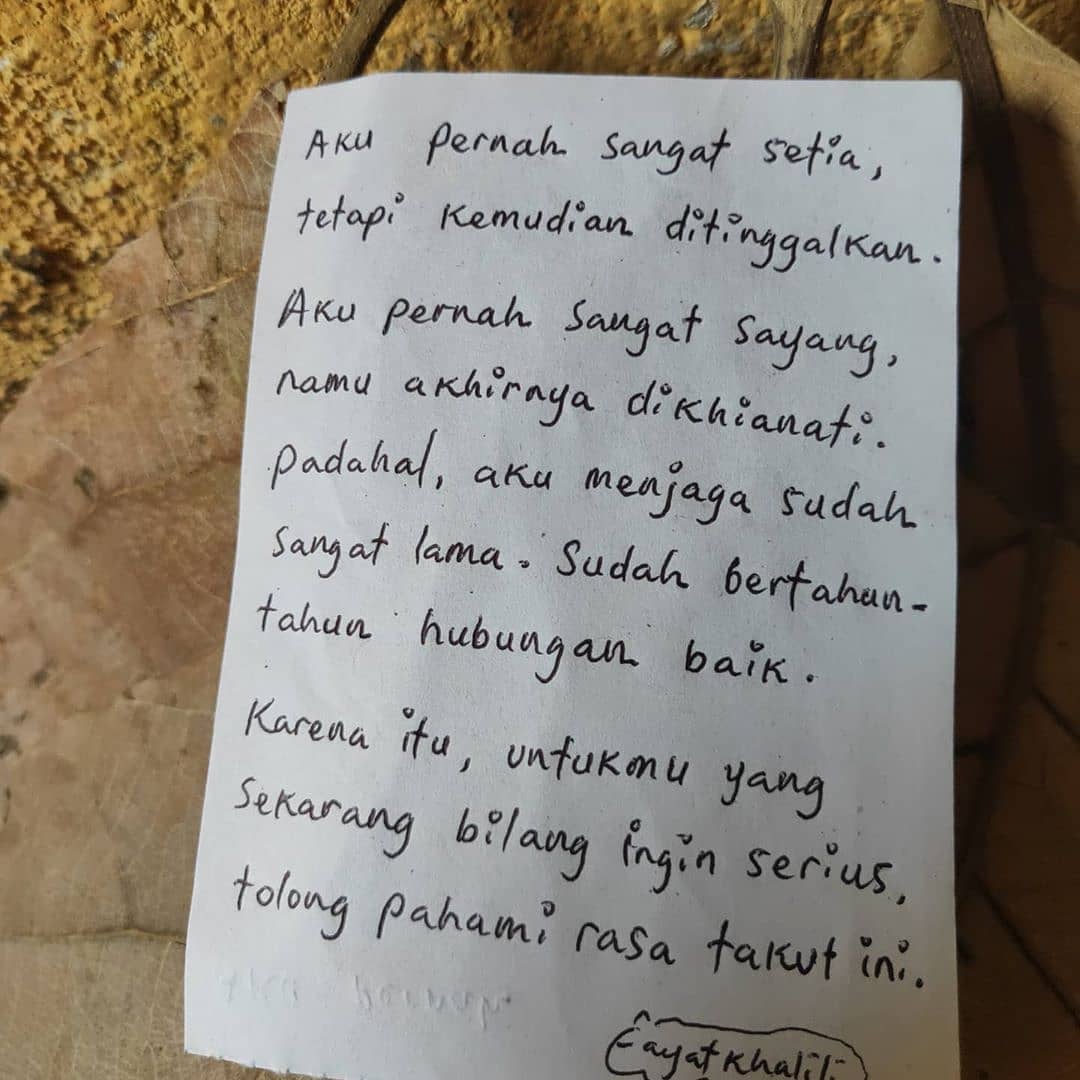 Aku pernah sangat setia,
tetapi kemudian ditinggalkan.
Aku pernah sangat sayang,
namu akhirnya dikhianati.
padahal, aku menjaga sudah
sangat lama. Sudah bertahun-
tahun hubungan baik.
Karena itu, untukmu yang
sekarang bilang ingin serius,
tolong pahami rasa takut ini.
ayatkhalili